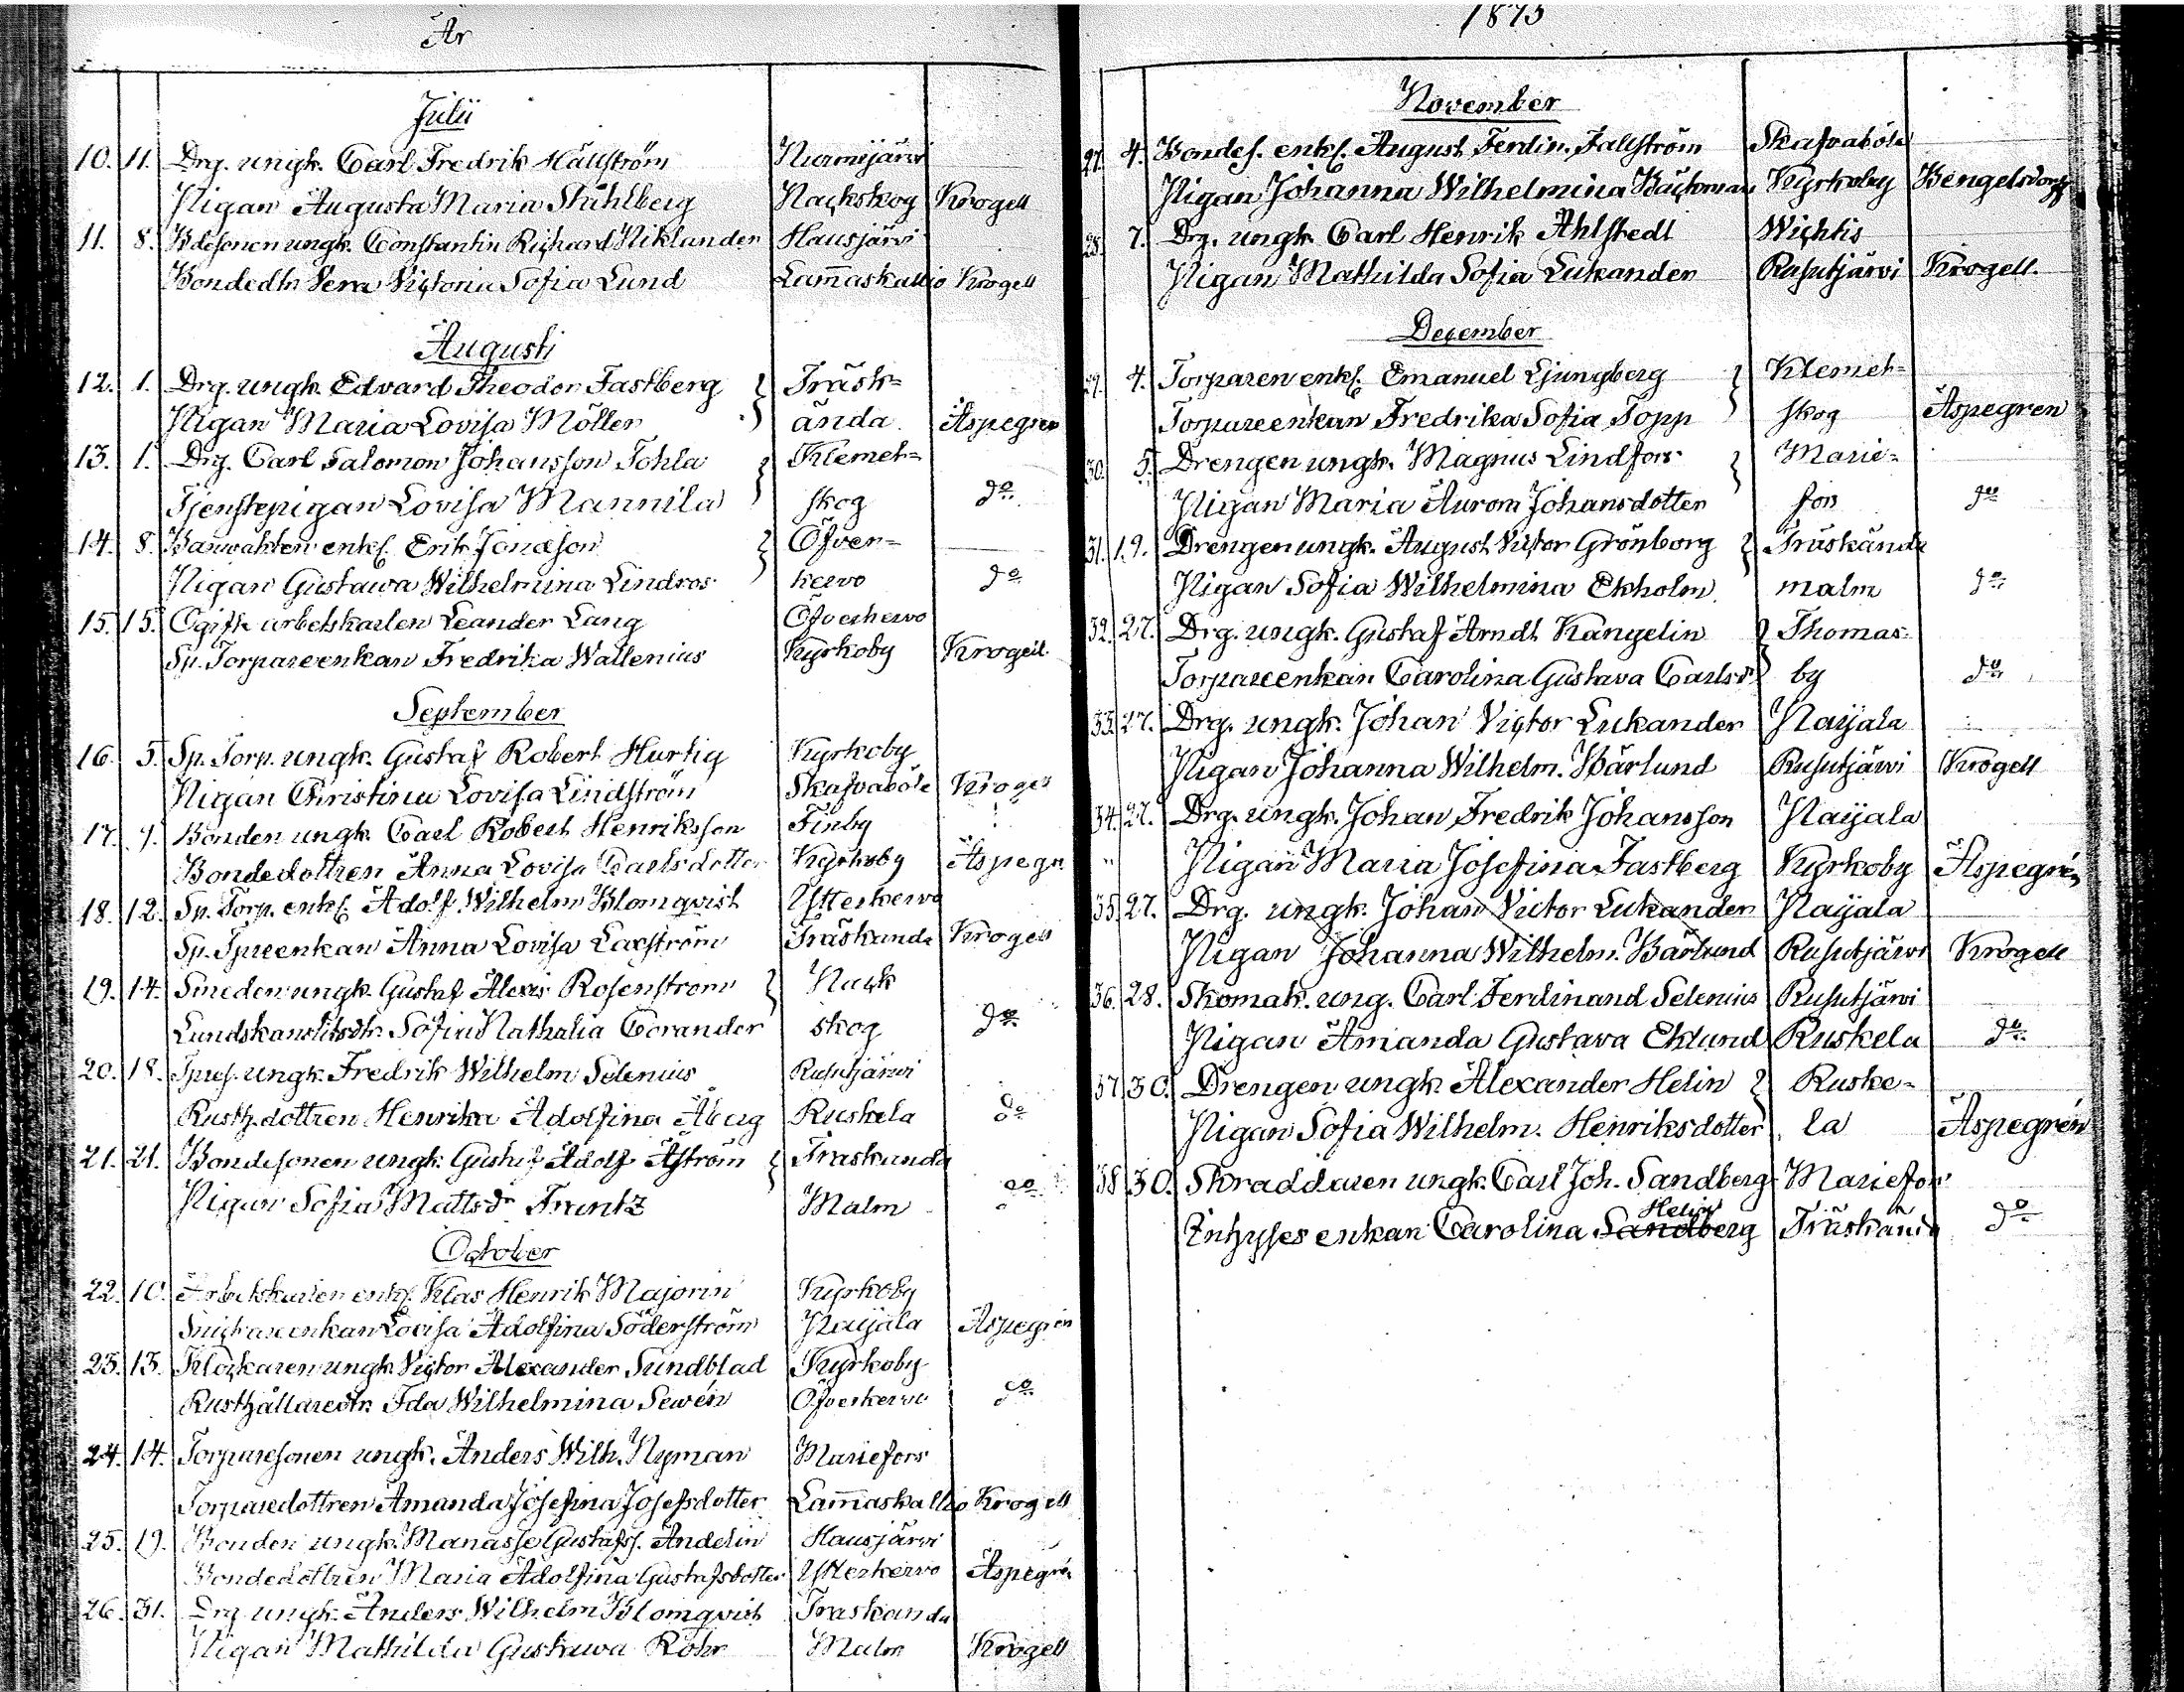 År
Julii
10. 11. Drg. ungk. Carl Fredrik Hällström Nurmijärvi
Pigan Augusta Maria Ståhlberg Nackskog Krogell
11. 8. Bdesonen ungk. Constantin Richard Niklander Hausjärvi
Bondedtr Vera Victoria Sofia Lund Lam̄askallio Krogell
Augusti
12. 1. Drg. ungk. Edvard Theodor Fastberg Träsk=
Pigan Maria Lovisa Möller ända Aspegren
13. 1. Drg. Carl Salomon Johansson Tohla Klemet=
Tjenstepigan Lovisa Mannila skog do
14. 8. Banvakten enkl. Erik Jonasson Öfver=
Pigan Gustawa Wilhelmina Lindros kervo do
15. 15. Ogifte arbetskarlen Leander Lang Öfverkervo
Sp. Torpareenkan Fredrika Wallenius Kyrkoby Krogell
September
16. 5. Sp. Torp. ungk. Gustaf Robert Hurtig Kyrkoby
Pigan Christina Lovisa Lindström Skafvaböle Krogell
17. 7. Bonden ungk. Carl Robert Henriksson Finby
Bondedottren Anna Lovisa Carlsdotter Kyrkoby Aspegr.
18. 12. Sp. Torp. enkl. Adolf Wilhelm Blomqvist Ytterkervo
Sp. Tpreenkan Anna Lovisa Laxström Träskända Krogell
19. 14. Smeden ungk. Gustaf Alexis Rosenström Nack
Sofia Nathalia Corander skog do
20. 18. Tpres. ungk. Fredrik Wilhelm Selenius Rusutjärvi
Rusth.dottren Henrika Adolfina Åberg Ruskela do
21. 21. Bondesonen ungk. Gustaf Adolf Åström Träskända
Pigan Sofia Mattsdr Frantz Malm do
October
22. 10. Arbetskarlen enkl. Klas Henrik Majorin Kyrkoby
Lovisa Adolfina Söderström Paijala Aspegrén
23. 13. Klockaren ungk. Victor Alexander Sundblad Kyrkoby
Rusthållaredtr. Ida Wilhelmina Sewén Öfverkervo do
24. 14. Torparesonen ungk. Anders Wilh. Nyman Mariefors
Torparedottren Amanda Josefina Josefsdotter Lam̄askallio Krogell
25. 19. Bonden ungk. Manasse Gustafss. Andelin Hausjärvi
Bondedottren Maria Adolfina Gustafsdotter Ytterkervo Aspegrén
26. 31. Drg. ungk. Anders Wilhelm Blomqvist Träskända
Pigan Mathilda Gustawa Röhr Malm Krogell
1875
November
27. 4. Bondes. enkl. August Ferdin. Fallström Skafvaböle
Pigan Johanna Wilhelmina Bäckman Kyrkoby Bengelsdorff
28. 7. Drg. ungk. Carl Henrik Ahlstedt Wichtis
Pigan Mathilda Sofia Lukander Rusutjärvi Krogell.
December
29. 4. Torparen enkl. Emanuel Ljungberg Klemet=
Torpareenkan Fredrika Sofia Topp skog Aspegren
30. 5. Drengen ungk. Magnus Lindfors Marie=
Pigan Maria Aurora Johansdotter fors do
31. 19. Drengen ungk. August Victor Grönborg Träskända
Pigan Sofia Wilhelmina Ekholm malm do
32. 27. Drg. ungk. Gustaf Arndt Kangelin Thomas=
Torpareenkan Carolina Gustava Carlsdr by do
33. 27. Drg. ungk. Johan Victor Lukander Paijala
Pigan Johanna Wilhelm. Bärlund Rusutjärvi Krogell
34. 27. Drg. ungk. Johan Fredrik Johansson Paijala
" Pigan Maria Josefina Fastberg Kyrkoby Aspegrén
35. 27. Drg. ungk. Johan Victor Lukander Paijala
Pigan Johanna Wilhelm. Bärlund Rusutjärvi Krogell
36. 28. Skomak. ung. Carl Ferdinand Selenius Rusutjärvi
Pigan Amanda Gustava Eklund Ruskela do
37. 30. Drengen ungk. Alexander Helin Ruske=
Pigan Sofia Wilhelm. Henriksdotter la Aspegrén
38 30. Skraddaren ungk. Carl Joh. Sandberg Mariefors
Helin
Inhyses enkan Carolina Sandberg Träskända do